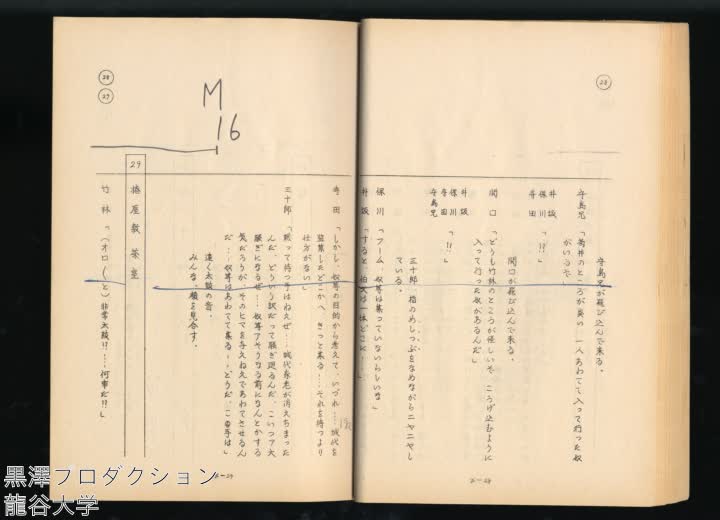 28
守島兄が飛び込んで来る。
守島兄「菊井のところが臭い 一人あわてて入って行った奴
がいるぞ」
井坂
保川
寺田「!?」
関口が飛び込んで来る。
関口「どうし竹林のところが怪しいぞ ころげ込むように
入って行った奴があるんだ」
井坂
保川
寺田
守島兄「!!」
三十郎、指のめしつぶをなめながらニヤニヤし
ている。
保川「フーム 奴等は集っていないらしいな」
井坂「すると 伯父は一体どこに…」
寺田「しかし、奴等の目的から考えて、いづれ…城代を
監禁したどこかへ、きっと来る…それを待つより
仕方がない」
三十郎「黙って待つ手はねえぜ…城代家老が消えちまった
んだ、どういう訳だって騒ぎ廻るんだ、こいつァ大
騒ぎになるぜ…奴等アそうなる前になんとかする
気だろうが、そのヒマを与えねえであわてさせるん
だ…奴等はあわてて集る…どうだ、この手は」
遠く太鼓の音。
みんな、顔を見合す。
M
16
28
29
29 椿屋敷 茶室
竹林「(オロ〱と)非常太鼓!?…何事だ!!」
2-28
2-29
黒澤プロダクション
龍谷大学